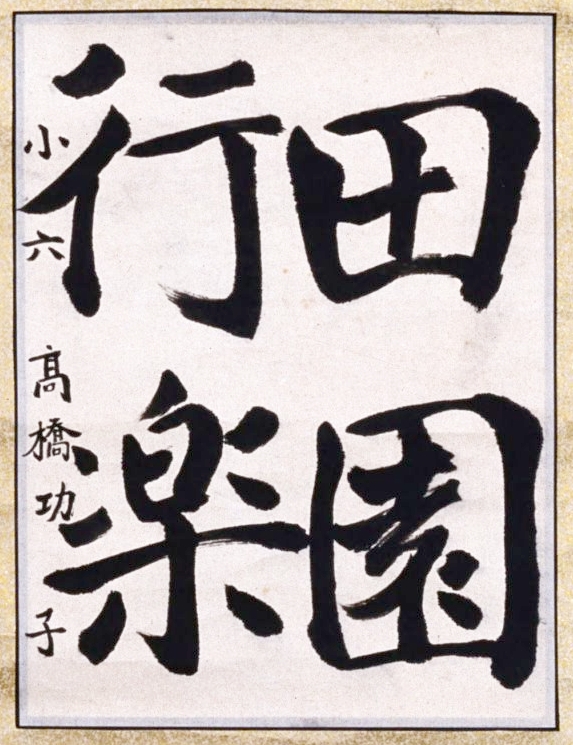 田園
行楽
小六 髙橋功子